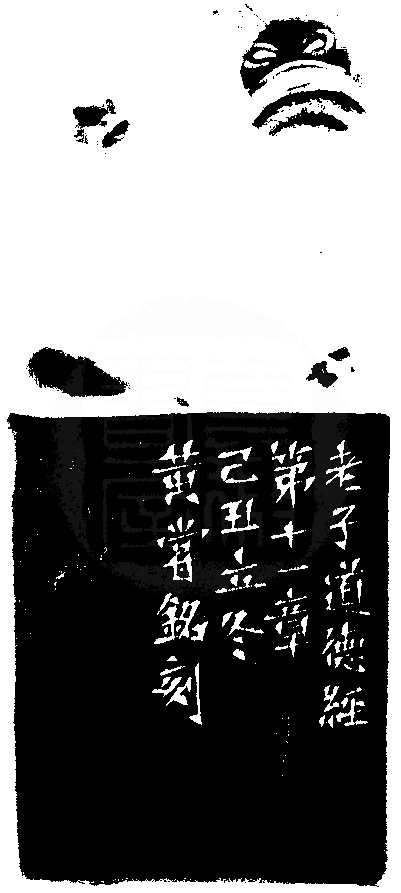 老子道德經
第十一章
己丑立冬
黃嘗銘刻